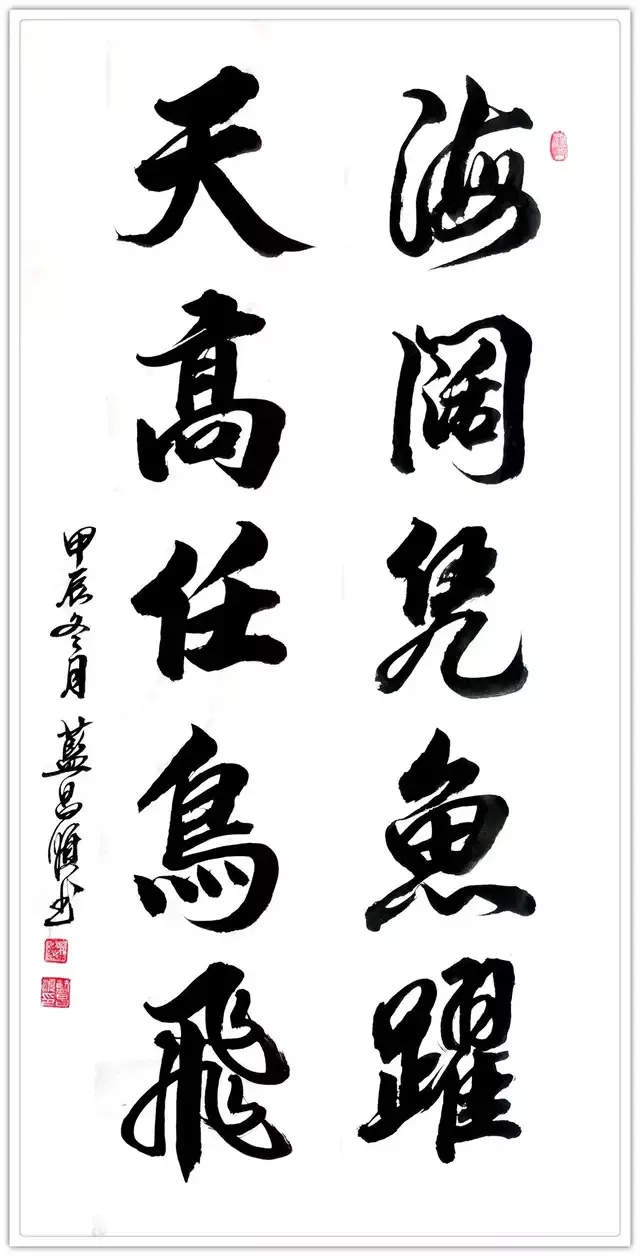 海闊凭魚躍
天高任鳥飛
甲辰冬月 藍昌順书